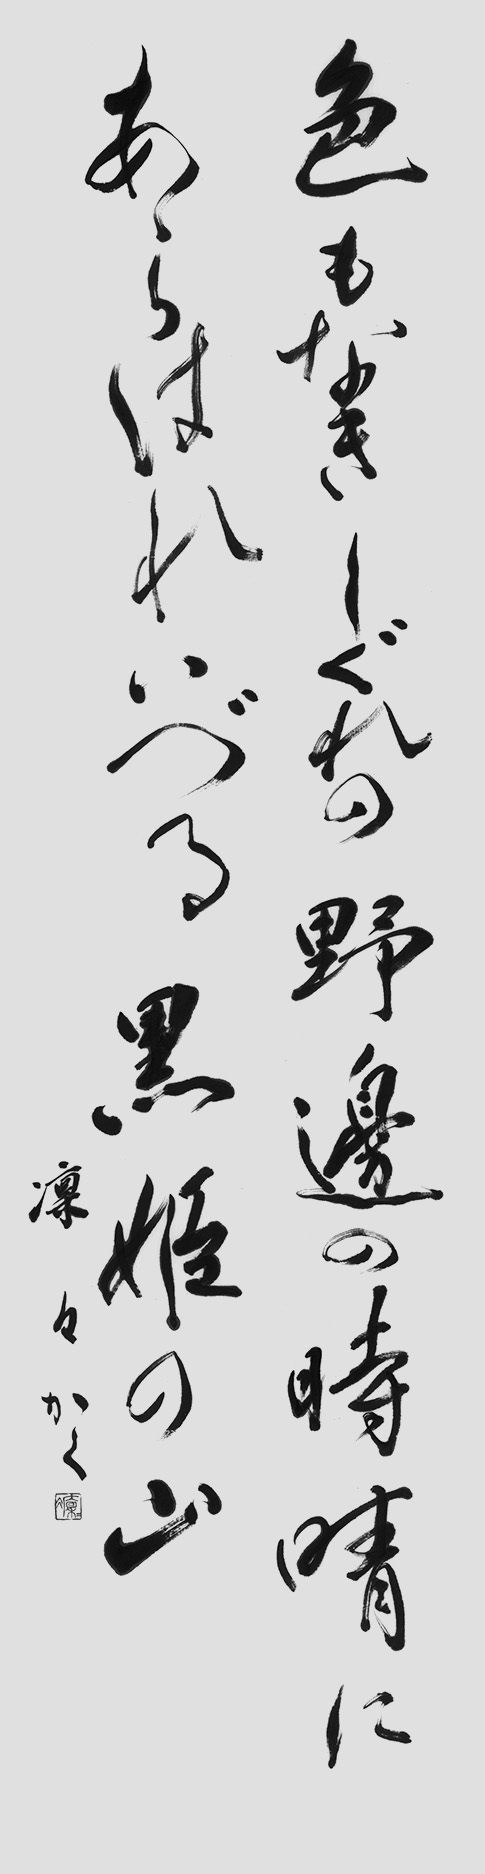 色もなきしぐれの野邊の時晴に
あらはれいづる黒姫の山
凜々かく